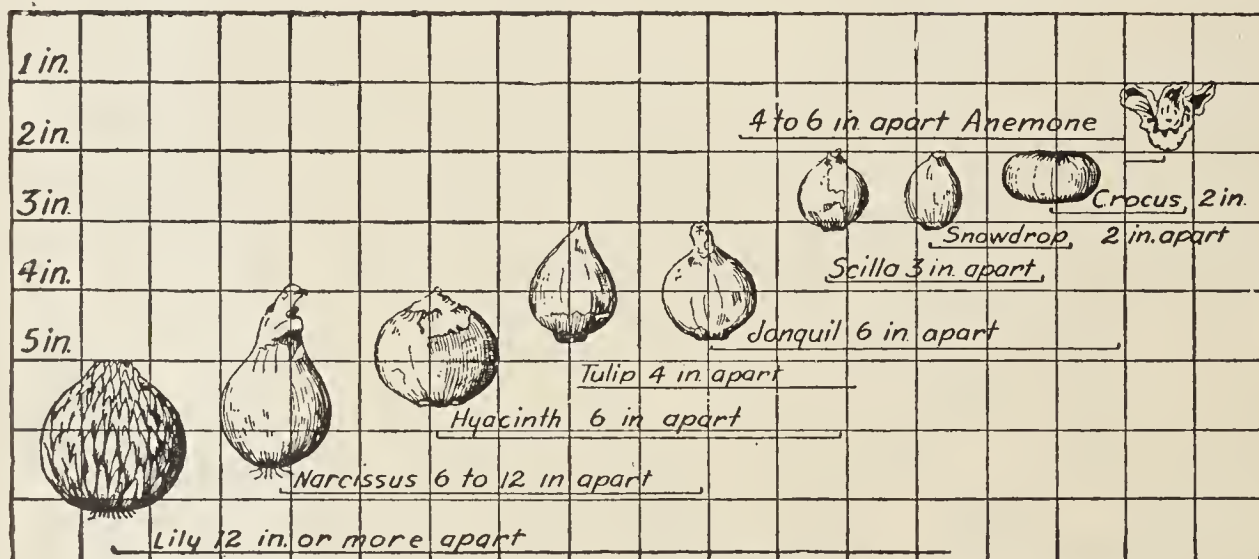 1 in.
2 in.
4 to 6 in. apart Anemone
3 in.
Crocus, 2 in.
Snowdrop, 2 in. apart
4 in.
Scilla 3 in. apart
5 in.
Jonquil 6 in. apart
Tulip 4 in. apart
Hyacinth 6 in apart
Narcissus 6 to 12 in apart
Lily 12 in. or more apart